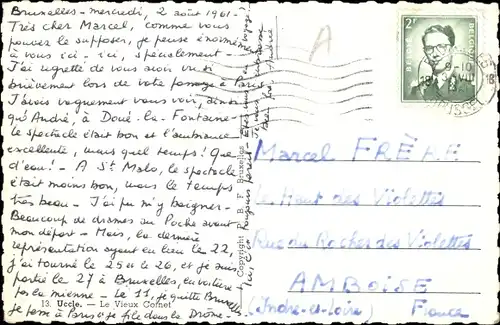 Bruxelles - mercredi, 2 août 1961 -
Très cher Marcel, comme vous
pouvez le supposer, je pense énormément
à vous ici - ici, spécialement -
J'ai regretté de vous avoir vu si
brièvement lors de votre passage à Paris
J'avais vaguement vous voir, ainsi
qu'André, à Doué-la-Fontaine -
le spectacle était bon et l'ambiance
excellente, mais quel temps! Que
d'eau! - A St Malo, le spectacle
était moins bon, mais le temps
très beau - J'ai pu m'y baigner -
Beaucoup de drames au Poche avant
mon départ - Mais, la dernière
représentation ayant eu lieu le 22,
j'ai tourné le 25 et le 26, et je suis
partie le 27 à Bruxelles, en voiture
par la mienne - Le 11, je quitte Bruxelles
je passe à Paris et je file dans la Drôme -
13. Uccle. — Le Vieux Cornet
Copyright
Bruxelles
BELGIQUE
2F
Marcel FRÈRE
Le Haut des Violettes
Rue du Rocher des Violettes
AMBOISE
(Indre-et-Loire) France